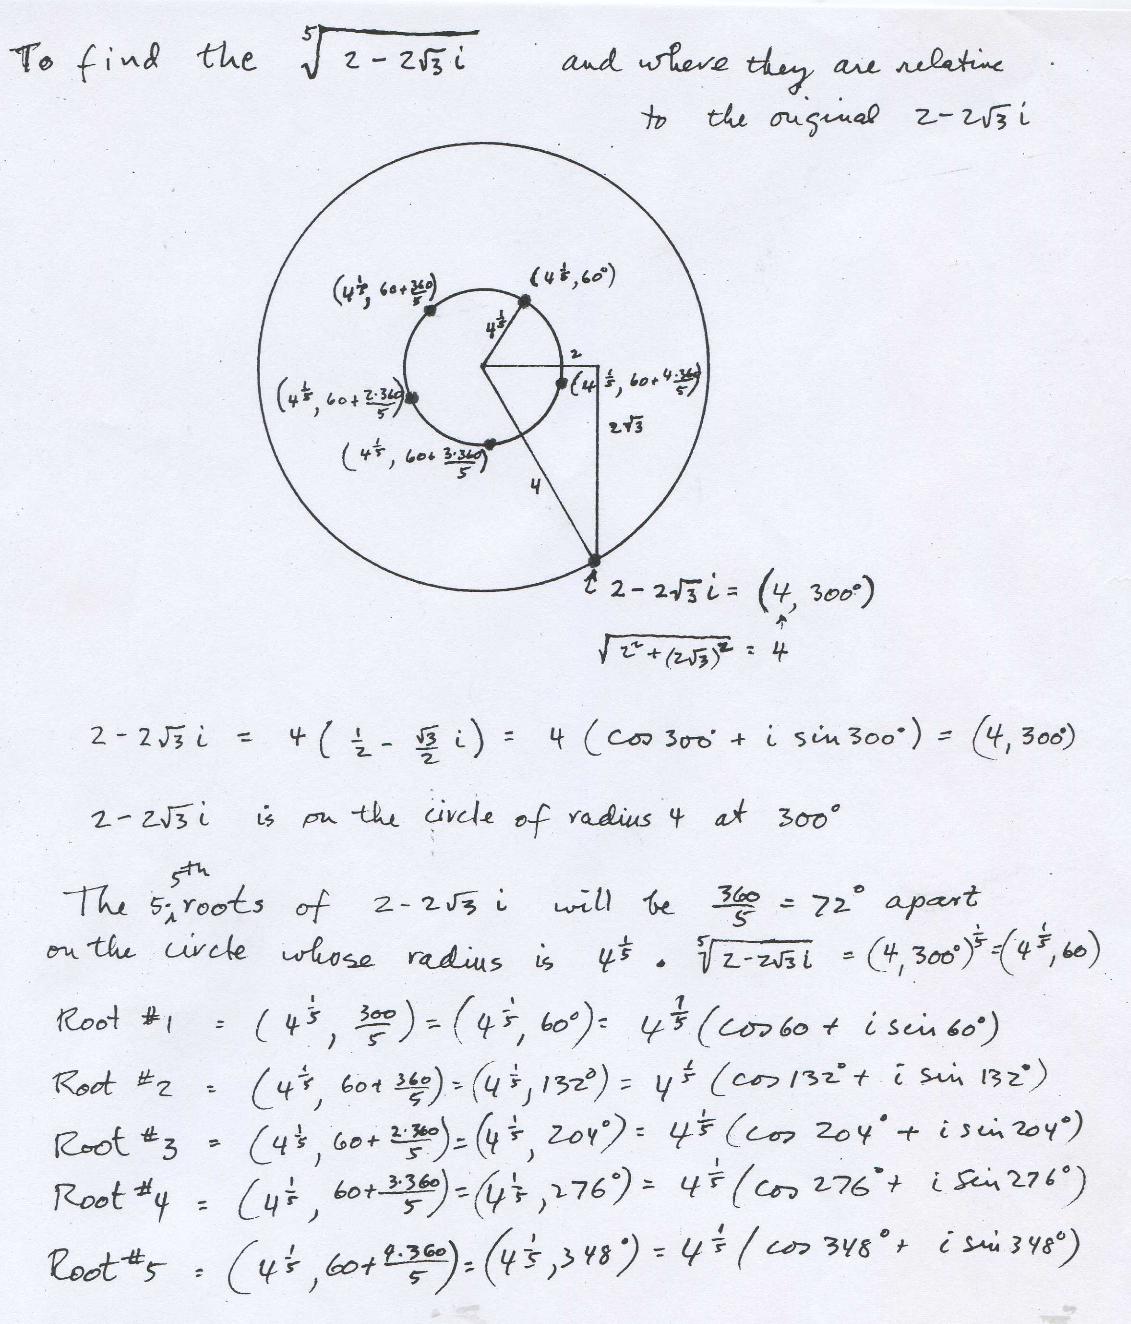 To find the ⁵√(2 - 2√3 i) and where they are relative
to the original 2 - 2√3 i
(4^(1/5), 60 + 360/5)
(4^(1/5), 60°)
4^(1/5)
2
(4^(1/5), 60 + 4·360/5)
(4^(1/5), 60 + 2·360/5)
2√3
(4^(1/5), 60 + 3·360/5)
4
2 - 2√3 i = (4, 300°)
√(2² + (2√3)²) = 4
2 - 2√3 i = 4 (1/2 - √3/2 i) = 4 (cos 300° + i sin 300°) = (4, 300°)
2 - 2√3 i is on the circle of radius 4 at 300°
The 5 5th roots of 2 - 2√3 i will be 360/5 = 72° apart
on the circle whose radius is 4^(1/5) . ⁵√(2 - 2√3 i) = (4, 300°)^(1/5) = (4^(1/5), 60)
Root #1 = (4^(1/5), 300/5) = (4^(1/5), 60°) = 4^(1/5) (cos 60 + i sin 60°)
Root #2 = (4^(1/5), 60 + 360/5) = (4^(1/5), 132°) = 4^(1/5) (cos 132° + i sin 132°)
Root #3 = (4^(1/5), 60 + 2·360/5) = (4^(1/5), 204°) = 4^(1/5) (cos 204° + i sin 204°)
Root #4 = (4^(1/5), 60 + 3·360/5) = (4^(1/5), 276°) = 4^(1/5) (cos 276° + i sin 276°)
Root #5 = (4^(1/5), 60 + 4·360/5) = (4^(1/5), 348°) = 4^(1/5) (cos 348° + i sin 348°)